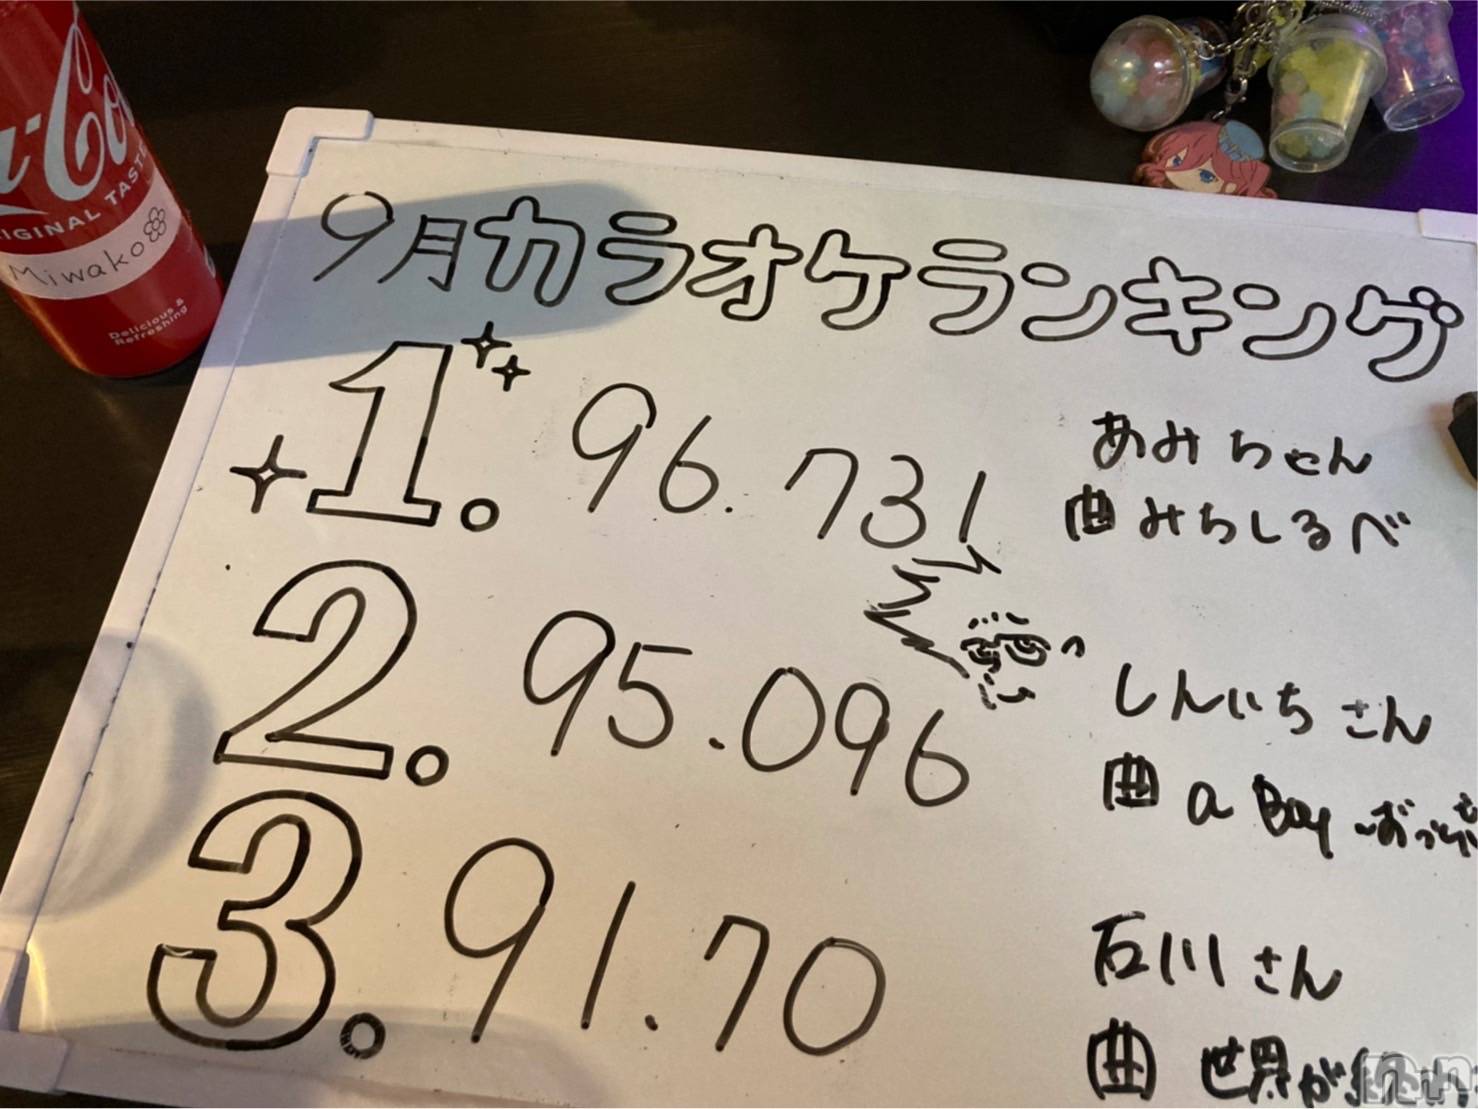 9月カラオケランキング
1. 96.731
あみちゃん
曲 みちしるべ
2. 95.096
しんいちさん
曲 a Boy ずっと
3. 91.70
石川さん
曲 世界が
ORIGINAL TASTE
Miwako
Delicious &
Refreshing